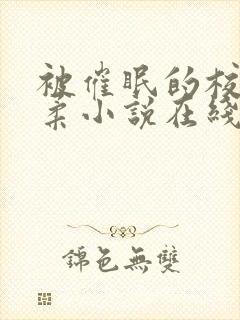 被催眠的校
柔小说在綫
錦色無雙